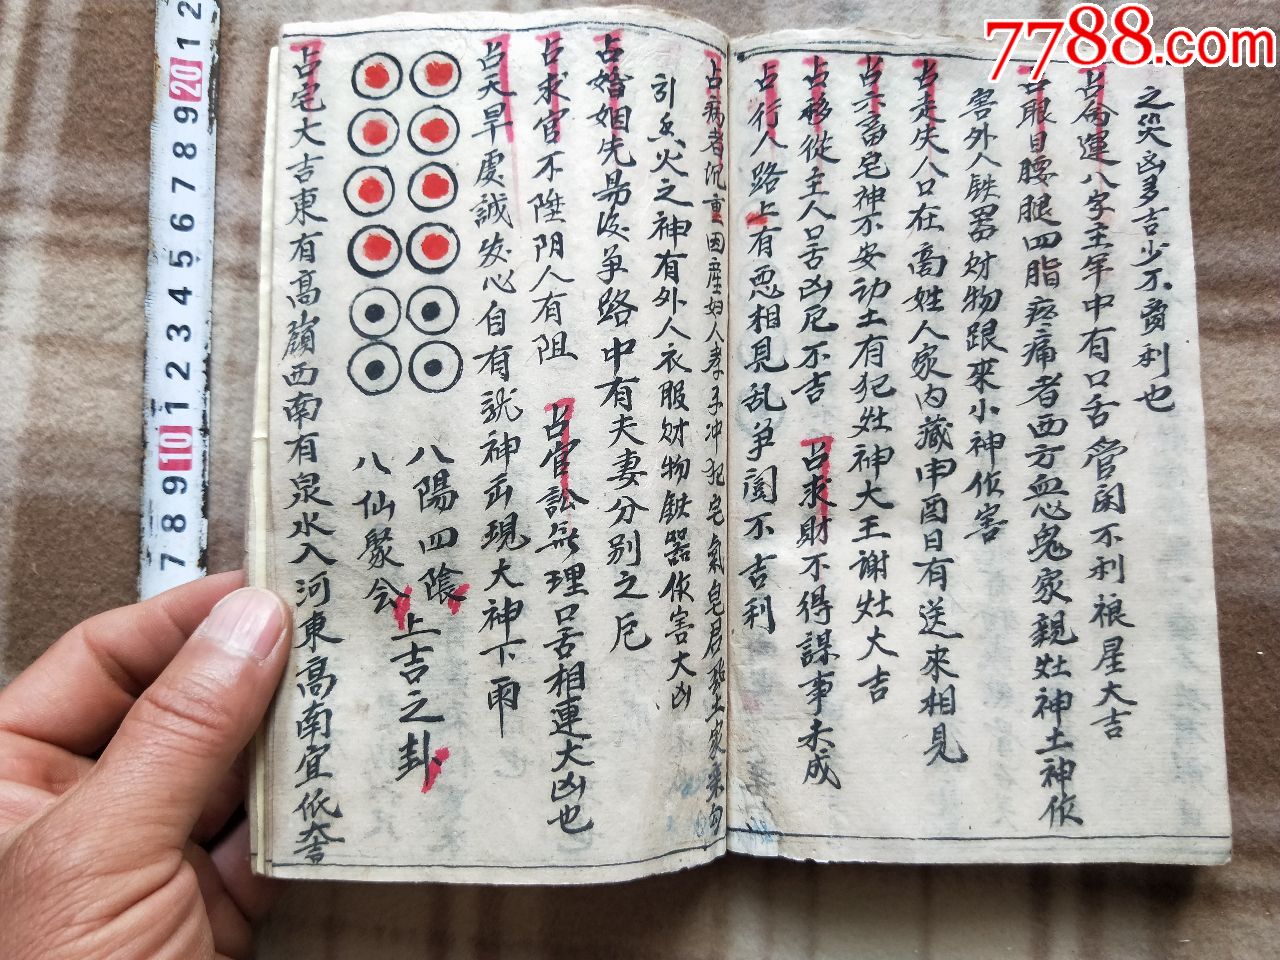 7788.com
之災凶多吉少不賓利也
占命運八字主年中有口舌管闲不利裉星大吉
占眼目腰腿四脂疼痛者西方血忌鬼家親灶神土神作
害外人鉄器财物跟來小神作害
占走失人口在高姓人家内藏申酉日有送來相見
占六畜皂神不安动土有犯灶神大王謝灶大吉
占移從主人口舌凶厄不吉 占求財不得謀事未成
占行人路上有恶相見乱争闘不吉利
占病者沉重因産妇人孝子冲犯宅氣皂君土家来
引火之神有外人衣服财物鉄器作害大凶
占婚姻先易後争路中有夫妻分别之厄
占求官不陞阴人有阻 占官訟無理口舌相連大凶也
占天旱虔誠发心自有神出現大神下雨
八陽四陰
八仙聚会上吉之卦
占宅大吉東有高嶺西南有泉水入河東高南宜低大吉
20 1 2
7 8 9 10 1 2 3 4 5 6 7 8 9